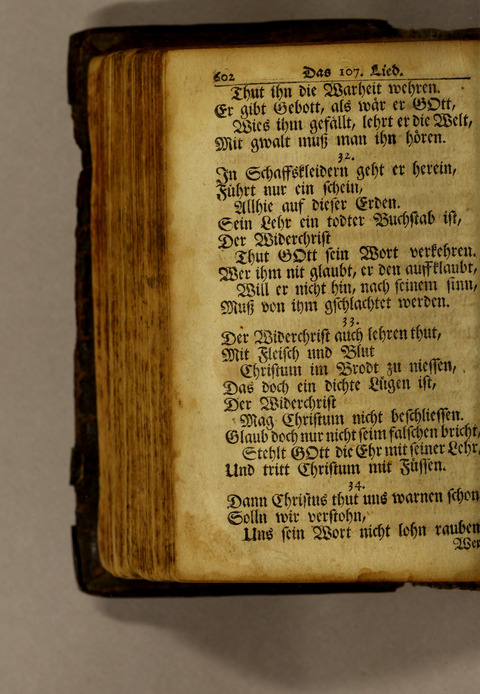 602 Das 107. Lied.
Thut ihn die Warheit wehren.
Er gibt Gebott, als wär er GOtt,
Wies ihm gefällt, lehrt er die Welt,
Mit gwalt muß man ihn hören.
32.
In Schaffskleidern geht er herein,
Führt nur ein schein,
Allhie auf dieser Erden.
Sein Lehr ein todter Buchstab ist,
Der Widerchrist
Thut GOtt sein Wort verkehren.
Wer ihm nit glaubt, er den auffklaubt,
Will er nicht hin, nach seinem sinn,
Muß von ihm gschlachtet werden.
33.
Der Widerchrist auch lehren thut,
Mit Fleisch und Blut
Christum im Brodt zu niessen,
Das doch ein dichte Lügen ist,
Der Widerchrist
Mag Christum nicht beschliessen.
Glaub doch nur nicht seim falschen bricht,
Stehlt GOtt die Ehr mit seiner Lehr,
Und tritt Christum mit Füssen.
34.
Dann Christus thut uns warnen schon
Solln wir verstohn,
Uns sein Wort nicht lohn rauben
Wer